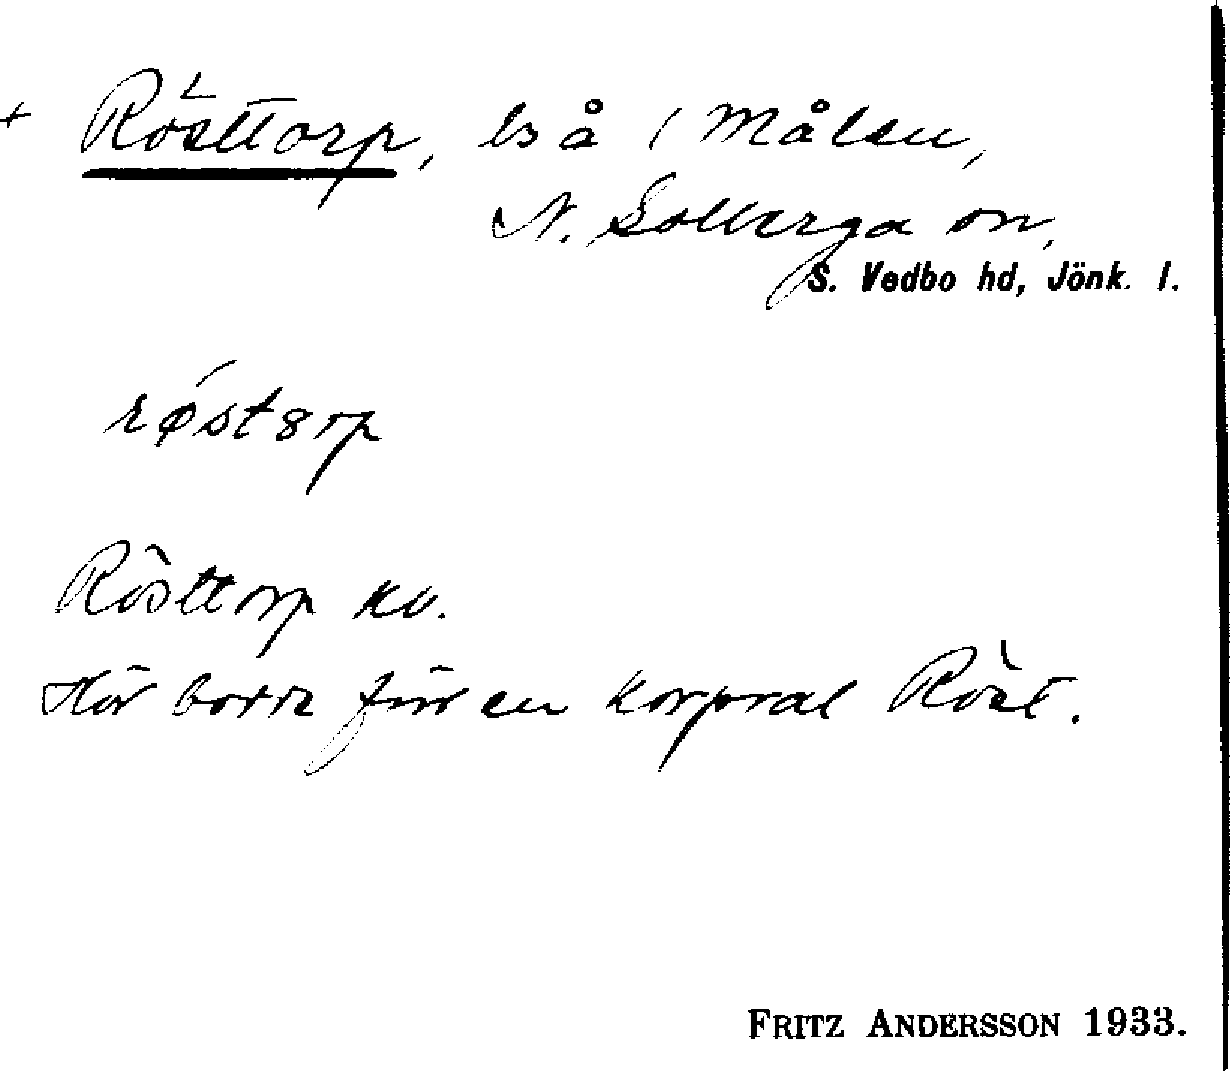 + Rösttorp, ls å 1 Målen,
N. Solberga sn,
S. Vedbo hd, Jönk. l.
røstorp
Rösttorp kv.
Här bodde förr en korpral Röst.
FRITZ ANDERSSON 1933.